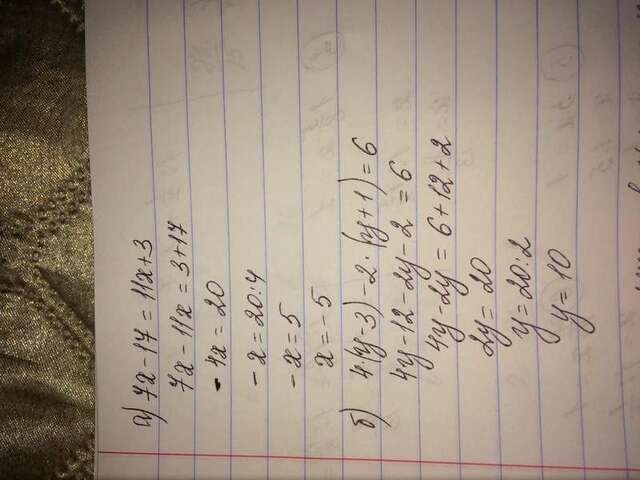 а) 7x-17 = 11x+3
7x-11x = 3+17
-4x = 20
-x = 20:4
-x = 5
x = -5
б) 4·(y-3)-2·(y+1) = 6
4y-12-2y-2 = 6
4y-2y = 6+12+2
2y = 20
y = 20:2
y = 10